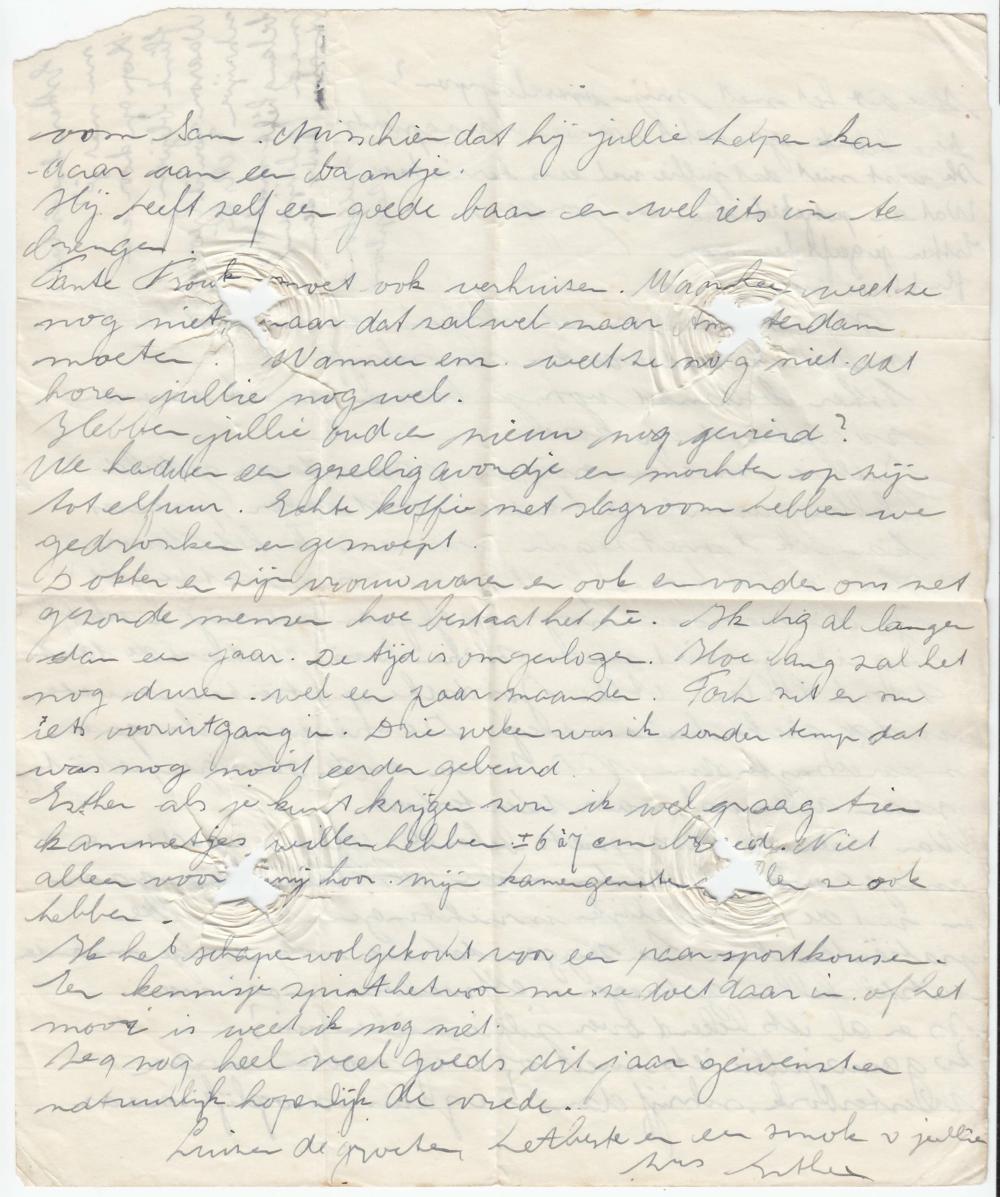 oom Sam. Misschien dat hij jullie helpen kan
daar aan een baantje.
Hij heeft zelf een goede baan en wel iets in te
brengen.
Tante Trouk moet ook verhuizen. Waarheen weet ze
nog niet maar dat zal wel naar Amsterdam
moeten. Wanneer enz. weet ze nog niet. dat
horen jullie nog wel.
Hebben jullie oud en nieuw nog gevierd?
We hadden een gezellig avondje en mochten op zijn
tot elf uur. Echte koffie met slagroom hebben we
gedronken en gesnoept.
Dokter en zijn vrouw waren er ook en vonden ons net
gezonde mensen hoe bestaat het hè. Ik lig al langer
dan een jaar. De tijd is omgevlogen. Hoe lang zal het
nog duren. wel een paar maanden. Toch zit er nu
iets vooruitgang in. Drie weken was ik zonder temp dat
was nog nooit eerder gebeurd.
Esther als je kunt krijgen zou ik wel graag tien
kammetjes willen hebben ± 6 à 7 cm breed. Niet
alleen voor mij hoor. mijn kamergenoten willen ze ook
hebben.
Ik heb schapenwol gekocht voor een paar sportkousen.
Een kennisje spint het voor me. ze doet daar in. of het
mooi is weet ik nog niet.
Zeg nog heel veel goeds dit jaar gewenst en
natuurlijk hopenlijk de vrede.
de groeten, het beste en een smok v jullie
zus Esther